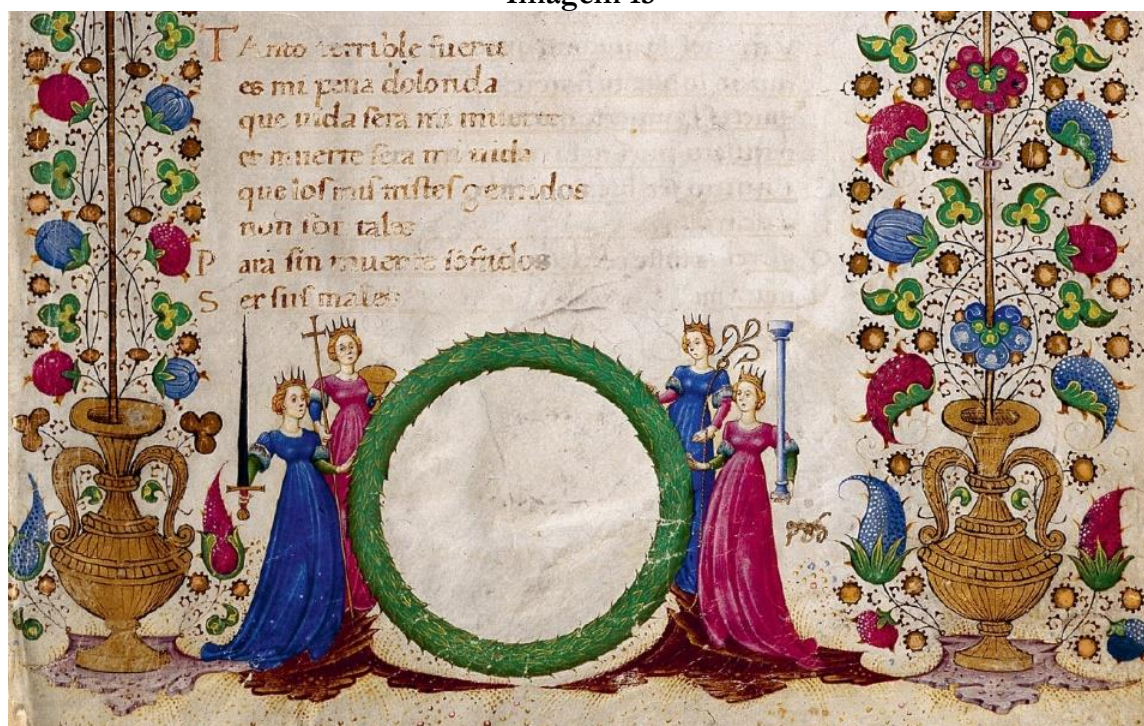 Imagem 13
TAnto terrible fuerte
es mi pena dolorida
que uida sera mi muerte
et muerte sera mi uida
que los mis tristes gemidos
non son tales
Para sin muerte sofridos
Ser sus males